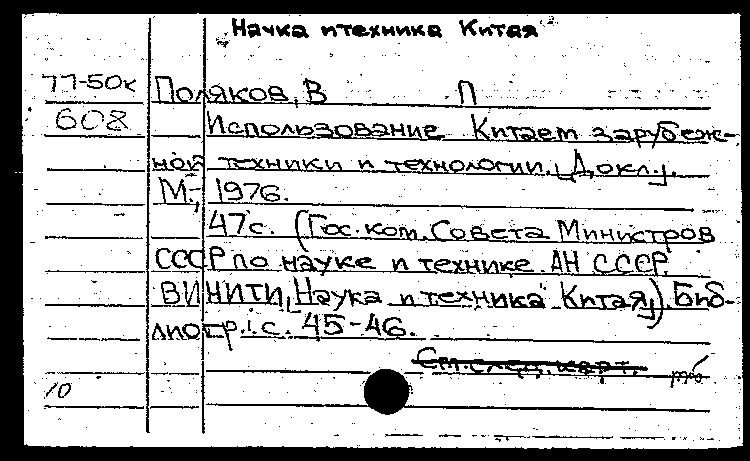 Наука и техника Китая
77-50к Поляков, В П
608 Использование Китаем зарубеж-
ной техники и технологии. [Докл.].
М., 1976.
47с. (Гос. ком. Совета Министров
СССР по науке и технике. АН СССР.
ВИНИТИ, "Наука и техника Китая"). Биб-
лиогр.: с. 45-46.
См. след. карт.
10